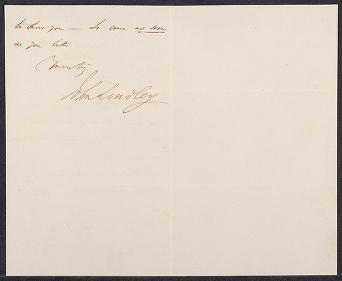 to show you — So come as soon
as you like
Yours truly
John Lindley